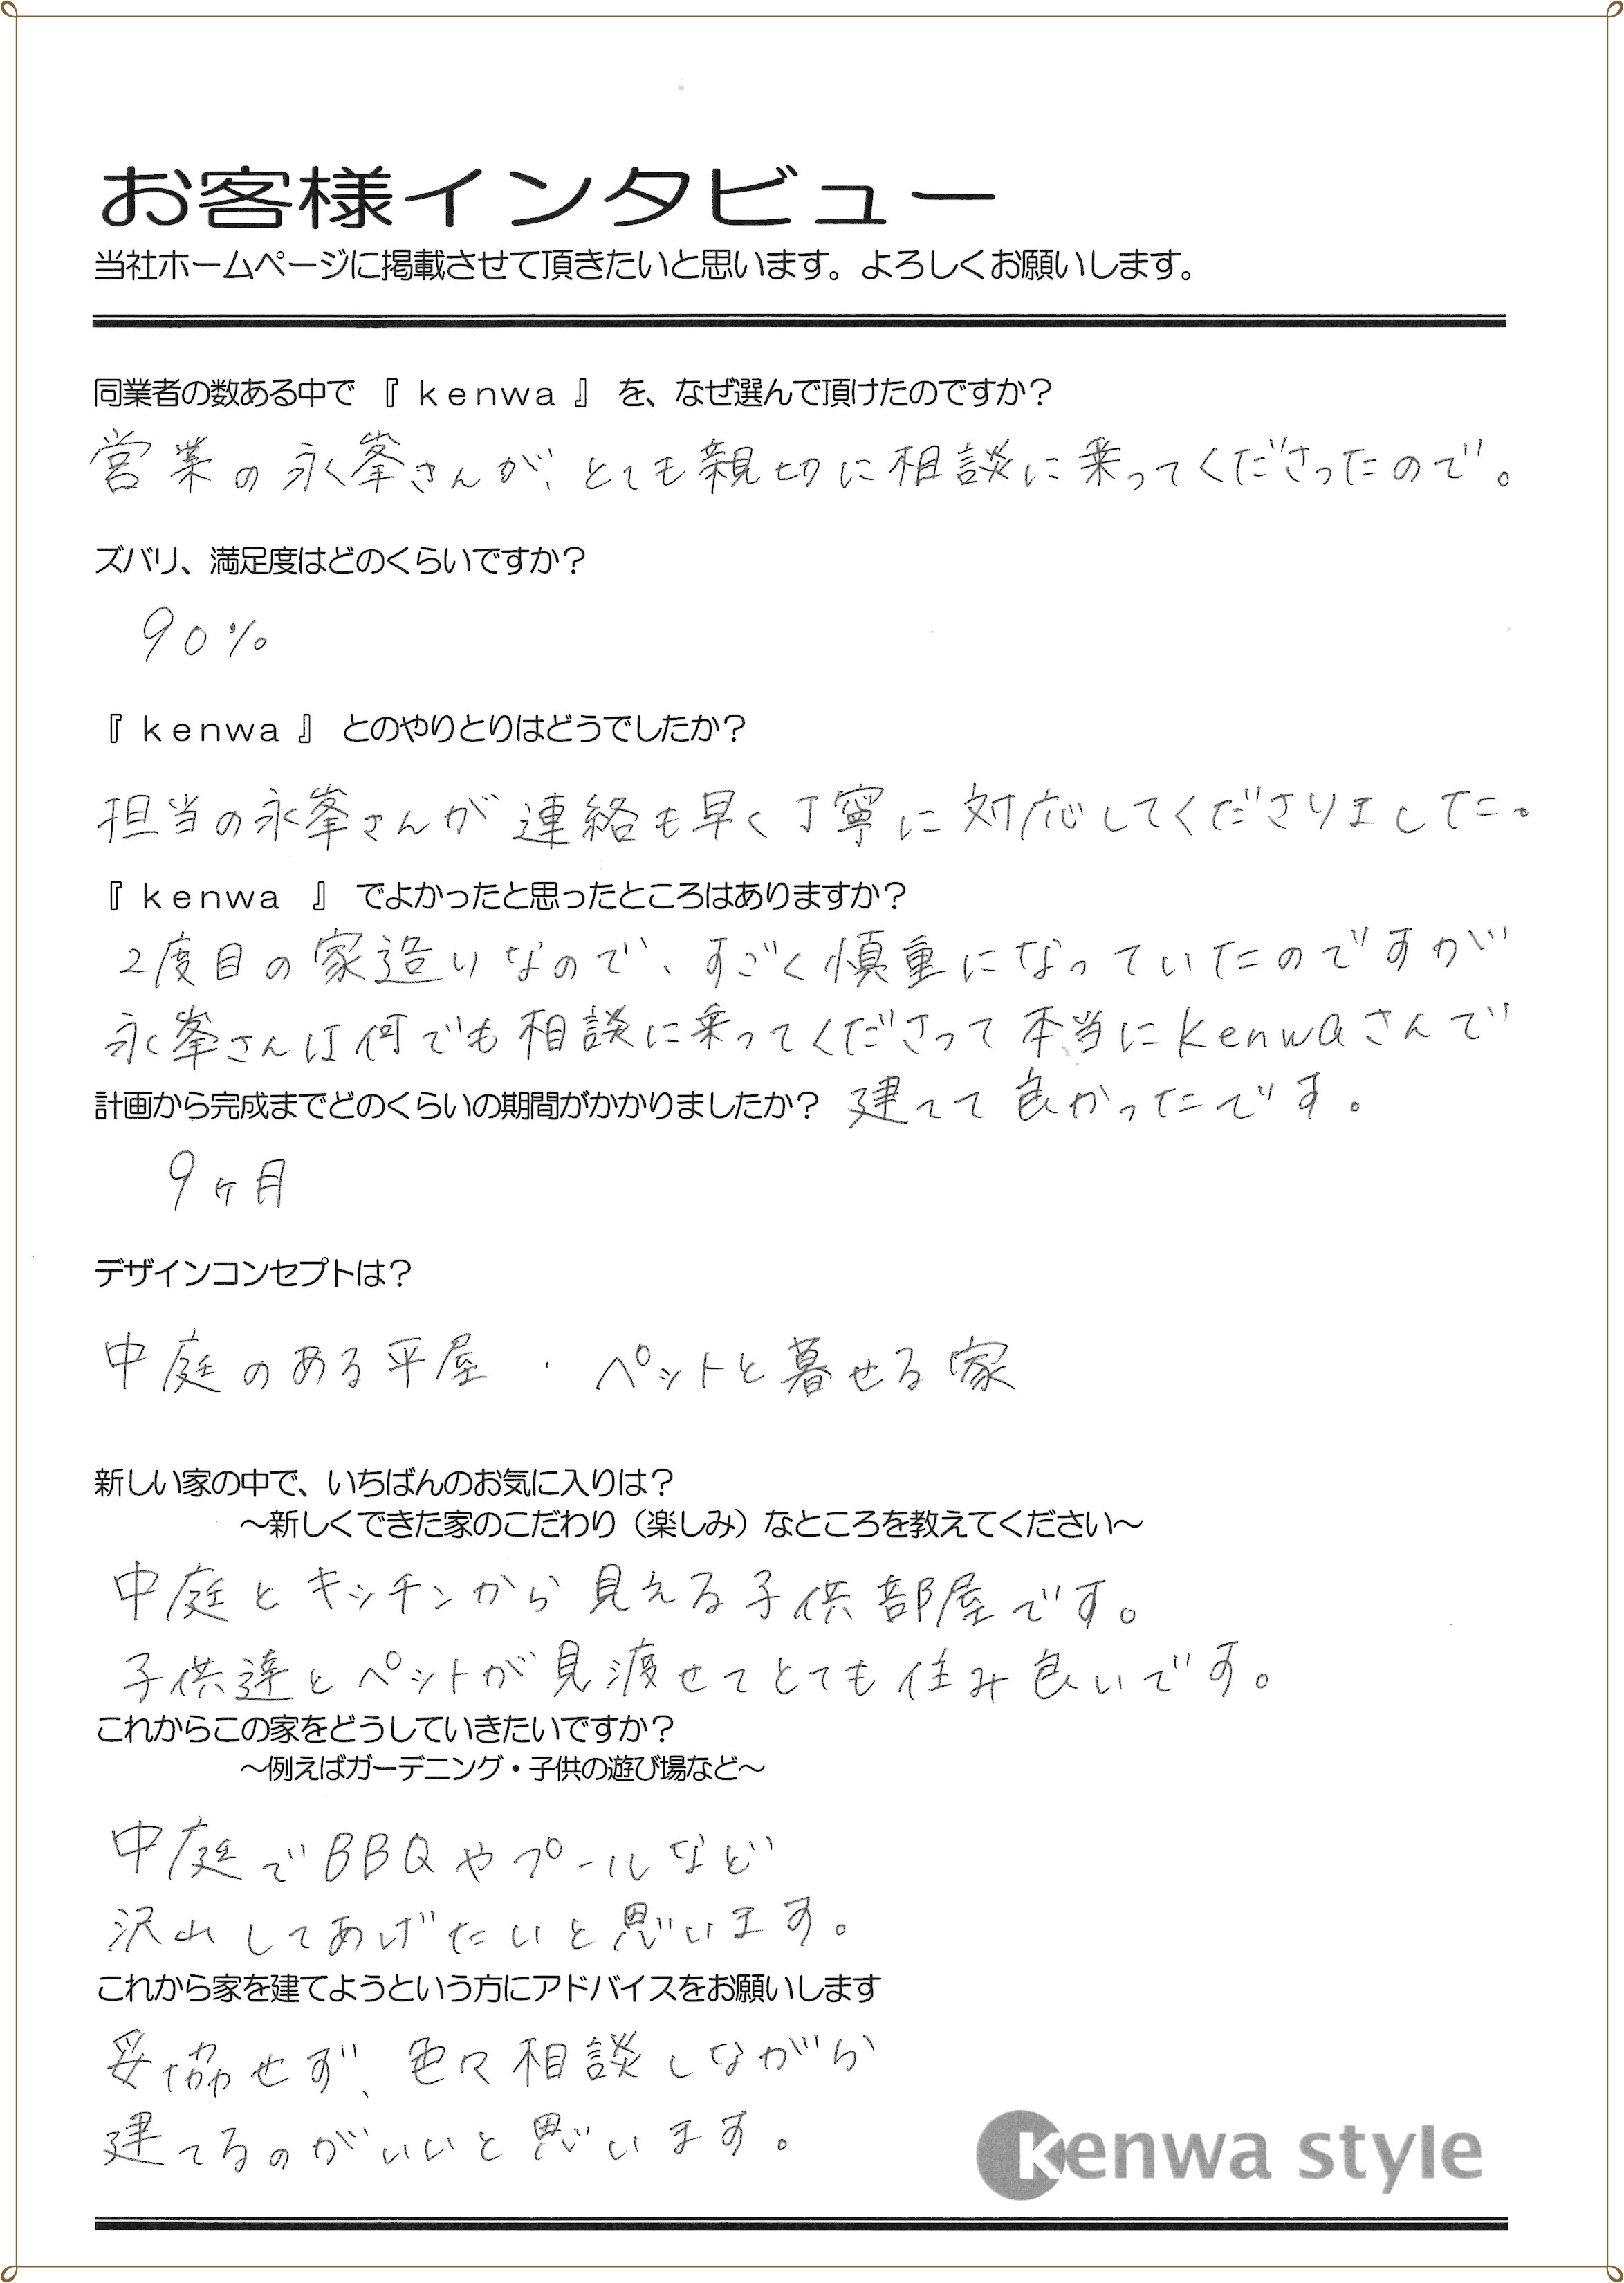 お客様インタビュー
当社ホームページに掲載させて頂きたいと思います。よろしくお願いします。
同業者の数ある中で 『 kenwa 』 を、なぜ選んで頂けたのですか?
営業の永峯さんが、とても親切に相談に乗ってくださったので。
ズバリ、満足度はどのくらいですか?
90%
『 kenwa 』 とのやりとりはどうでしたか?
担当の永峯さんが連絡も早く丁寧に対応してくださりましてた。
『 kenwa 』 でよかったと思ったところはありますか?
2度目の家造りなので、すごく慎重になっていたのですが
永峯さんは何でも相談に乗ってくださって本当にkenwaさんで
建てて良かったです。
計画から完成までどのくらいの期間がかかりましたか?
9ヶ月
デザインコンセプトは?
中庭のある平屋 ・ ペットと暮せる家
新しい家の中で、いちばんのお気に入りは?
~新しくできた家のこだわり(楽しみ)なところを教えてください~
中庭とキッチンから見える子供部屋です。
子供達とペットが見渡せてとても住み良いです。
これからこの家をどうしていきたいですか?
~例えばガーデニング・子供の遊び場など~
中庭でBBQやプールなど
沢山してあげたいと思います。
これから家を建てようという方にアドバイスをお願いします
妥協せず、色々相談しながら
建てるのがいいと思います。
kenwa style